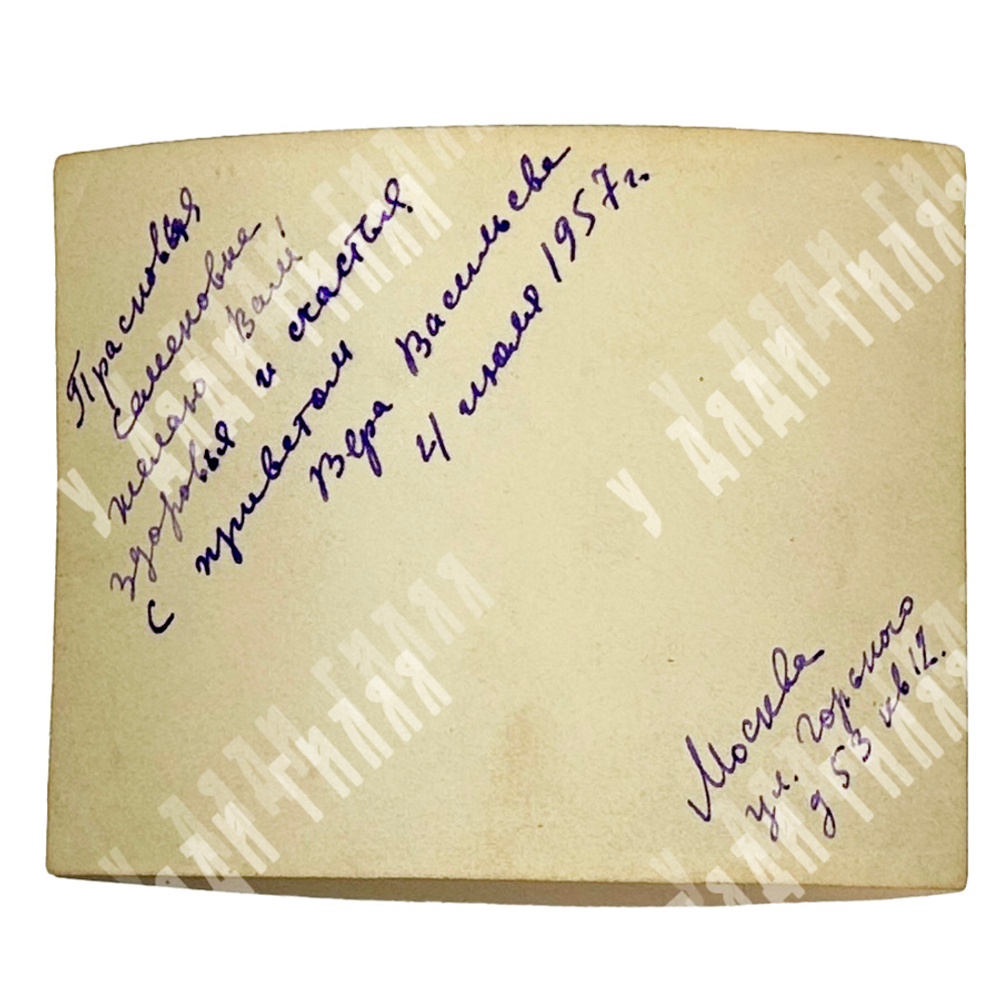 Прасковья
Семеновна
желаю Вам,
здоровья и счастья.
С приветом
Вера Васильева
4 июля 1957 г.
Москва
ул. Горького
д 53 кв 12.
У ДЯДИ ГИЛЯЯ
У ДЯДИ ГИЛЯЯ
У ДЯДИ ГИЛЯЯ
У ДЯДИ ГИЛЯЯ